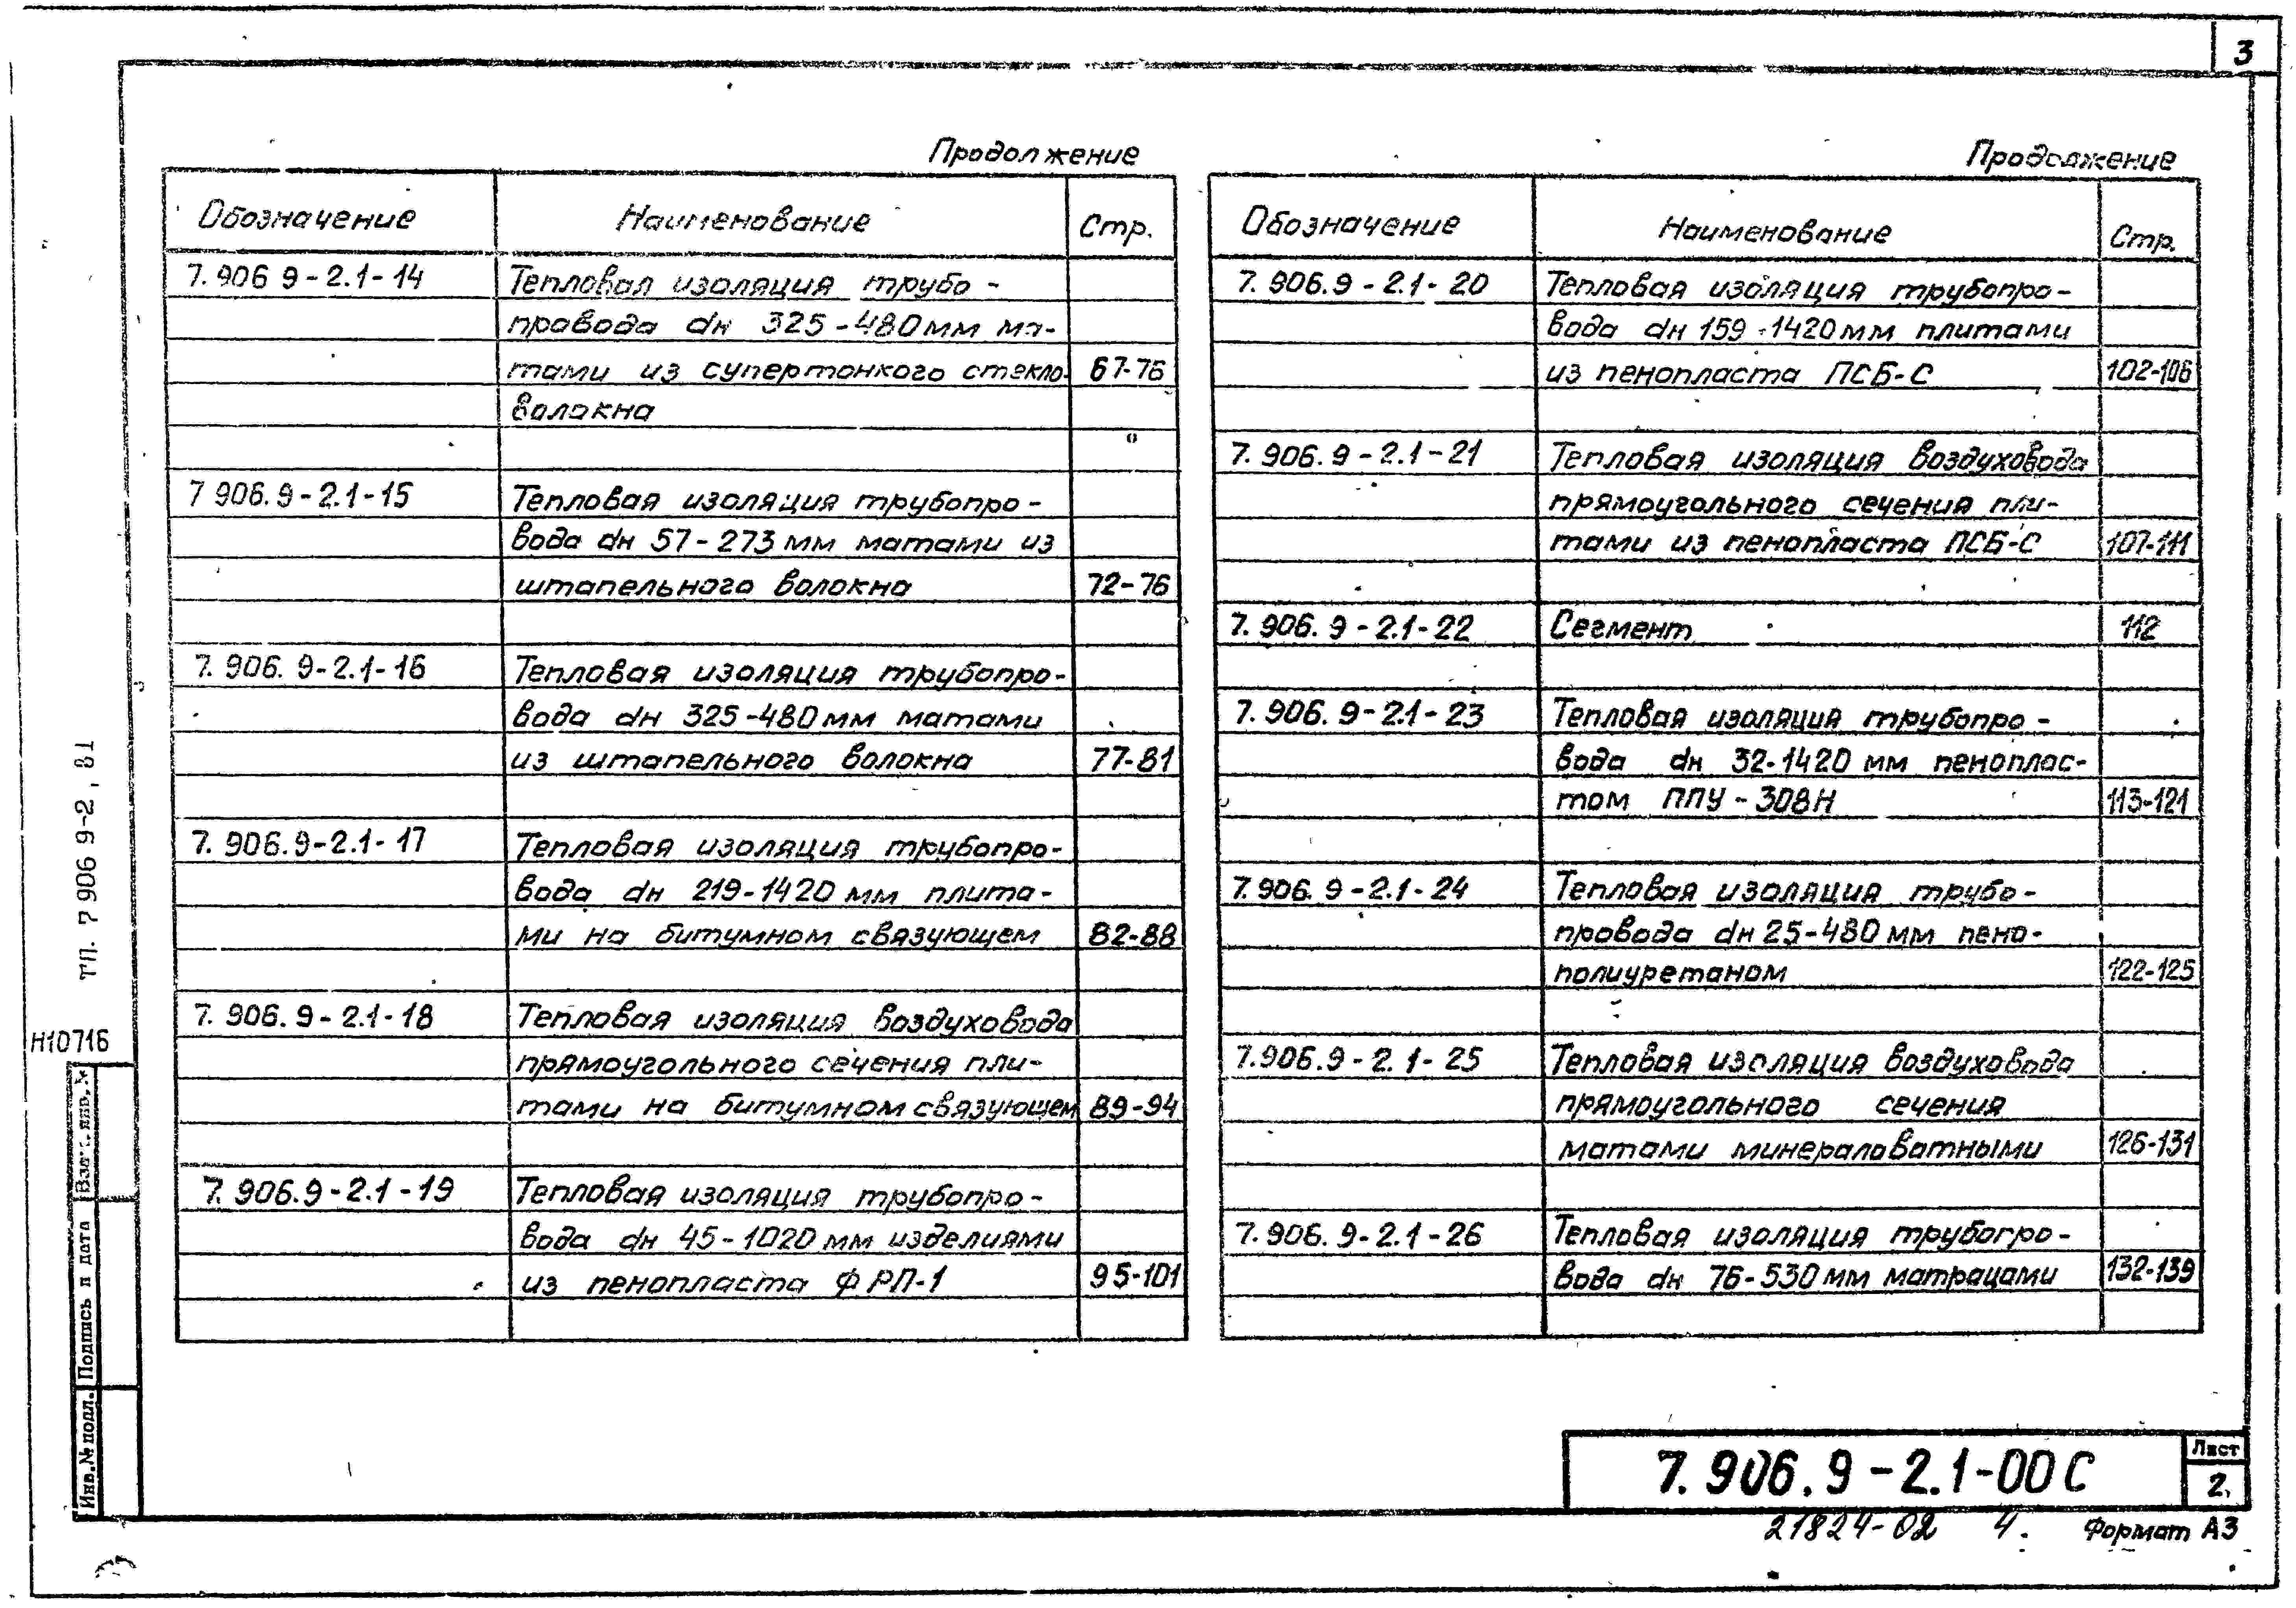 3
Продолжение
Обозначение Наименование Стр.
7.906 9-2.1-14 Тепловая изоляция трубо-
провода dн 325-480мм ма-
тами из супертонкого стекло- 67-76
волокна
7 906.9-2.1-15 Тепловая изоляция трубопро-
вода dн 57-273 мм матами из
штапельного волокна 72-76
7.906.9-2.1-16 Тепловая изоляция трубопро-
вода dн 325-480мм матами
из штапельного волокна 77-81
7.906.9-2.1-17 Тепловая изоляция трубопро-
вода dн 219-1420мм плита-
ми на битумном связующем 82-88
7.906.9-2.1-18 Тепловая изоляция воздуховода
прямоугольного сечения пли-
тами на битумном связующем 89-94
7.906.9-2.1-19 Тепловая изоляция трубопро-
вода dн 45-1020мм изделиями
из пенопласта ФРП-1 95-101
Продолжение
Обозначение Наименование Стр.
7.906.9-2.1-20 Тепловая изоляция трубопро-
вода dн 159-1420мм плитами
из пенопласта ПСБ-С 102-106
7.906.9-2.1-21 Тепловая изоляция воздуховода
прямоугольного сечения пли-
тами из пенопласта ПСБ-С 107-111
7.906.9-2.1-22 Сегмент 112
7.906.9-2.1-23 Тепловая изоляция трубопро-
вода dн 32-1420 мм пеноплас-
том ППУ-308Н 113-121
7.906.9-2.1-24 Тепловая изоляция трубо-
провода dн 25-480 мм пено-
полиуретаном 122-125
7.906.9-2.1-25 Тепловая изоляция воздуховода
прямоугольного сечения
матами минераловатными 126-131
7.906.9-2.1-26 Тепловая изоляция трубопро-
вода dн 76-530мм матрацами 132-139
тп. 7 906 9-2, в1
Н10716
Взам. инв. №
Подпись и дата
Инв. № подл.
7.906.9-2.1-00С
Лист
2
21824-02 4.
Формат А3